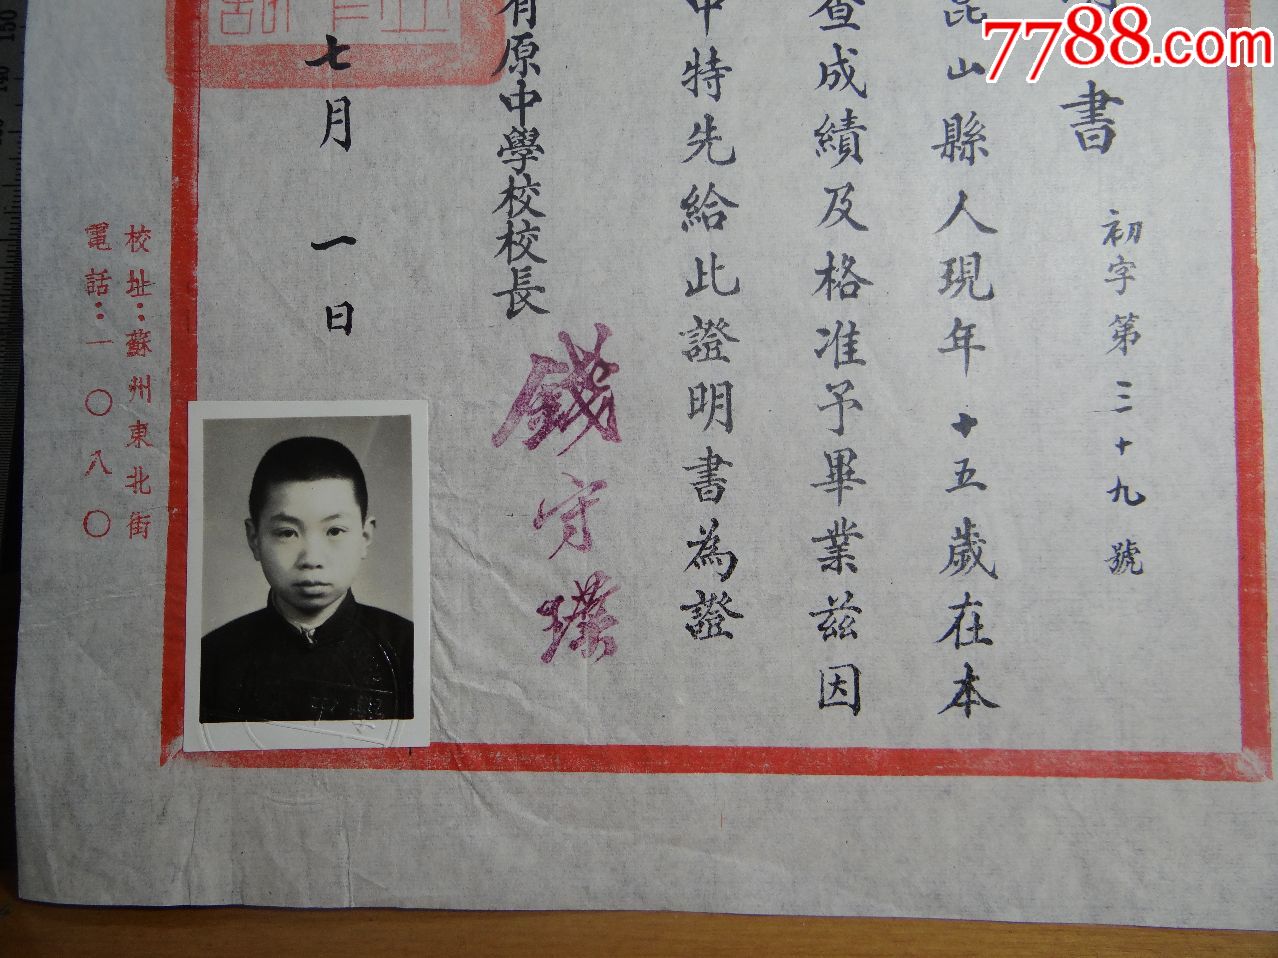 7788.com
書
初字第三十九號
昆山縣人現年十五歲在本
查成績及格准予畢業茲因
中特先給此證明書為證
有原中學校校長
錢守璞
七月一日
校址：蘇州東北街
電話：一〇八〇